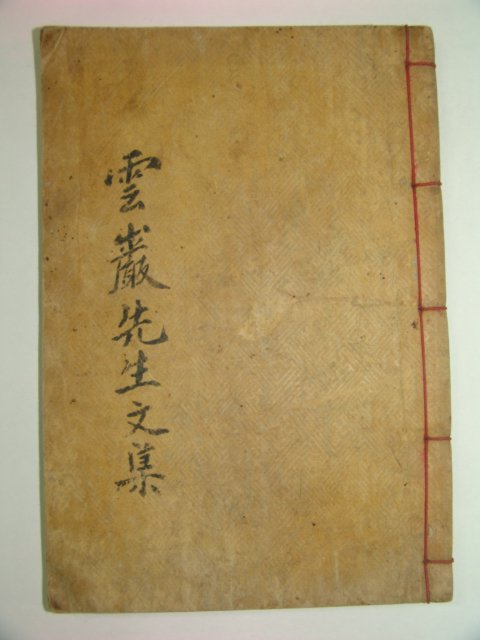 雲巖先生文集